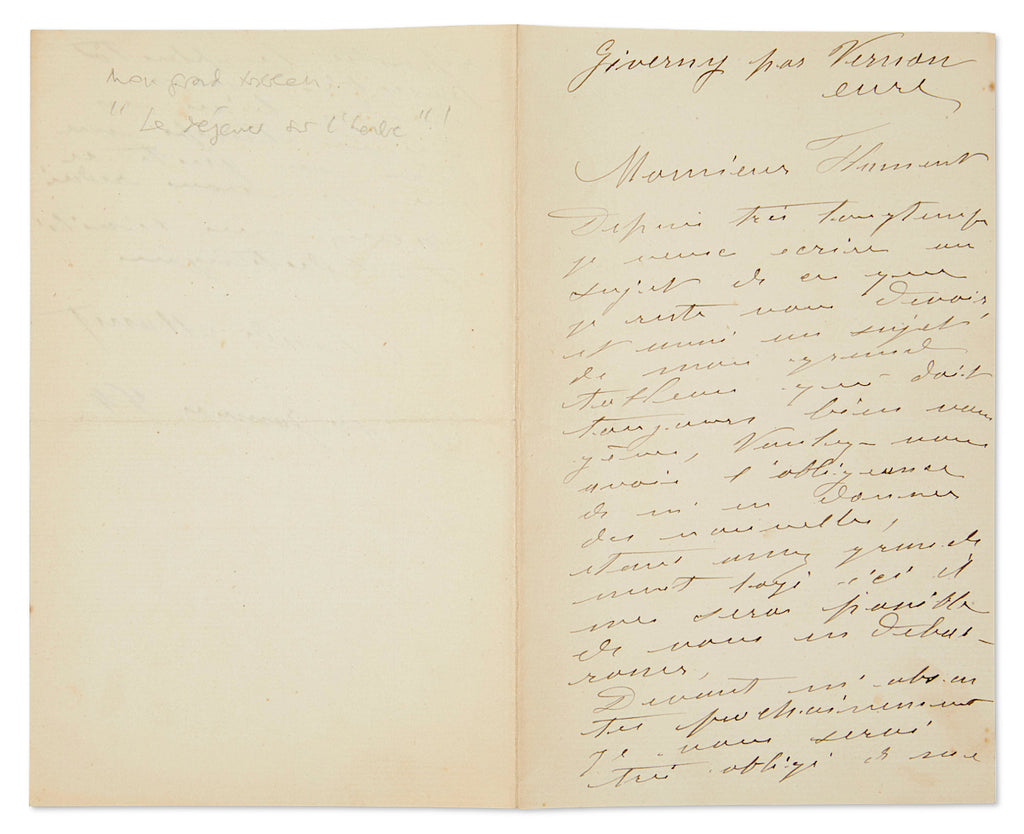 mon grand tableau.
" Le déjeuner sur l'herbe " !
Giverny par Vernon
eure
Monsieur Flament
Depuis très longtemps
je veux ecrire au
sujet de ce que
je reste vous devoir
et aussi au sujet
de mon grand
tableau qui doit
toujours bien vous
gêner, Voulez-vous
avoir l'obligeance
de m'en donner
des nouvelles,
etant assez grande
ment logé ici il
me sera possible
de vous en debar-
rasser,
Devant m'absen
ter prochainement
Je vous serai
très obligé de me